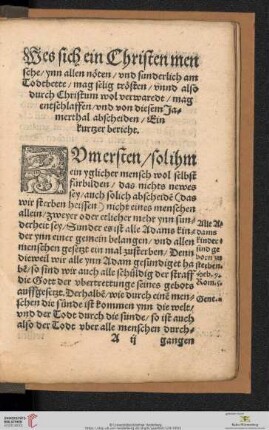 Wes sich ein Christen men
sche/ ynn allen nöten/ vnd sunderlich am
Todtbette/ mag selig trösten/ vnnd also
durch Christum wol verwaredt/ mag
entschlaffen/ vnd von diesem Ja-
merthal abscheiden/ Ein
kurtzer bericht.
ZVmersten/ sol ihm
ein yglicher mensch wol selbst
fürbilden/ das nichts newes
sey/ auch solich abscheidē (das
wir sterben heissen) nicht eines menschen
allein/ zweyer oder etlicher mehr ynn sun-
derheit sey/ Sunder es ist alle Adams kin-
der ynn einer gemein belangen/ vnd allen
menschen gesetzt ein mal zusterben/ Denn
dieweil wir alle ynn Adam gesündiget ha
bē/ so sind wir auch alle schüldig der straff
die Gott der vbertrettunge seines gebots
auffgesetzt. Derhalbē/ wie durch eine men-
schen die sünde ist kommen ynn die welt/
vnd der Todt durch die sunde/ so ist auch
also der Todt vber alle menschen durch-
A ij gangen
Alle A-
dams
kinder
sind ge
born zu
sterben.
Rom.
Gene.